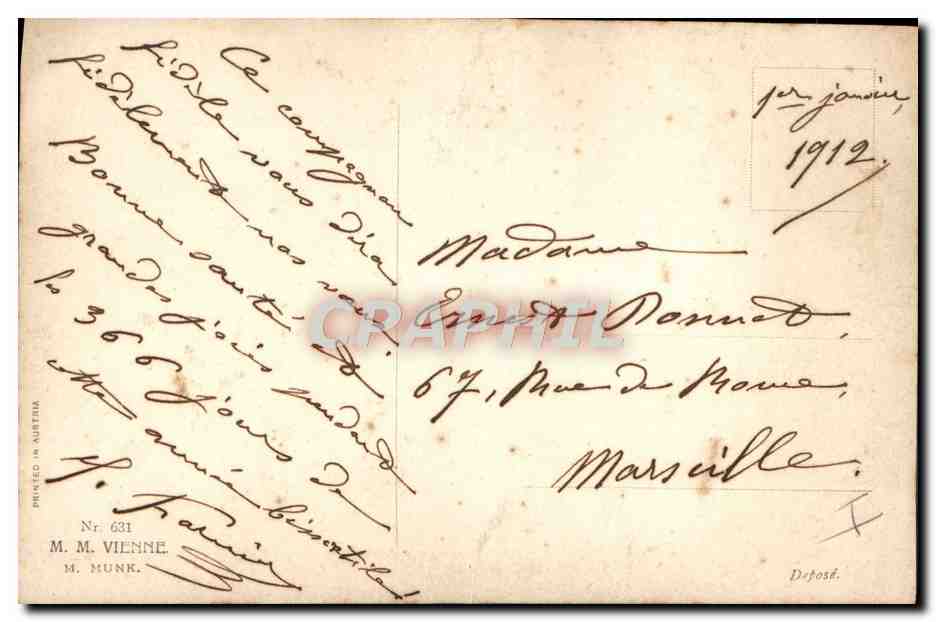 Ce compagnon
fidèle vous dira
fidèlement nos vœux.
Bonne santé et
grandes joies pendant
les 366 jours de
cette année bissextile!
1er janvier,
1912.
Madame
Ernest Bonnet,
67, Rue de Rome,
Marseille.
CRAPHIL
PRINTED IN AUSTRIA
Nr. 631
M. M. VIENNE
M. MUNK.
Deposé.